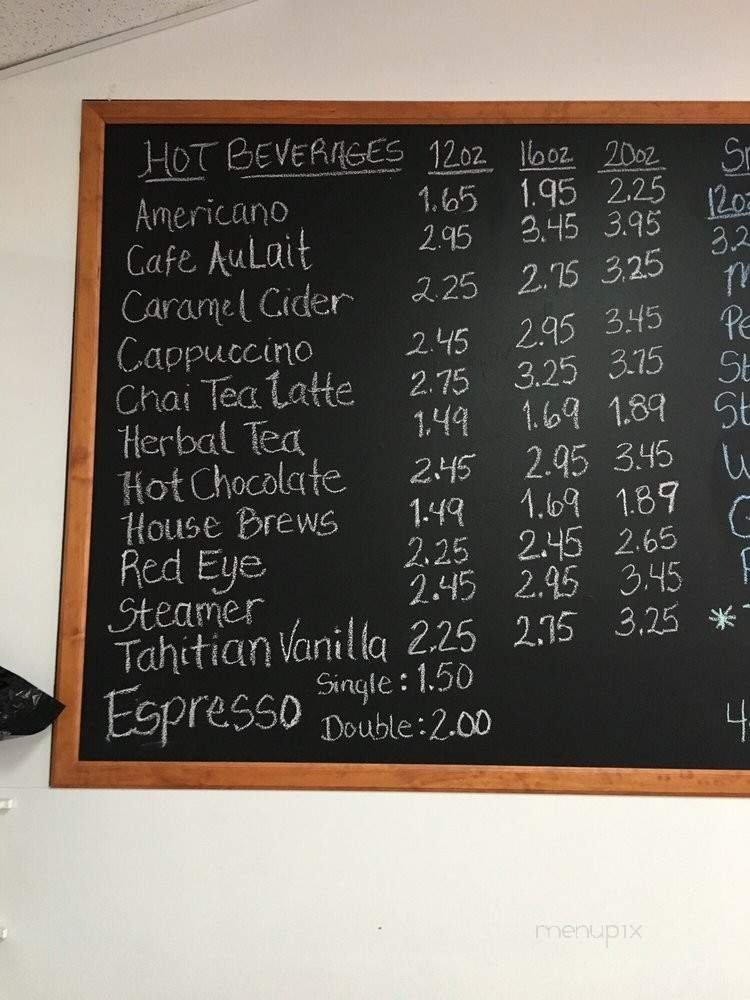 HOT BEVERAGES 12oz 16oz 20oz
Americano 1.65 1.95 2.25
Cafe AuLait 2.95 3.45 3.95
Caramel Cider 2.25 2.75 3.25
Cappuccino 2.45 2.95 3.45
Chai Tea Latte 2.75 3.25 3.75
Herbal Tea 1.49 1.69 1.89
Hot Chocolate 2.45 2.95 3.45
House Brews 1.49 1.69 1.89
Red Eye 2.25 2.45 2.65
Steamer 2.45 2.95 3.45
Tahitian Vanilla 2.25 2.75 3.25
Espresso Single: 1.50
Double: 2.00
12oz
menupix